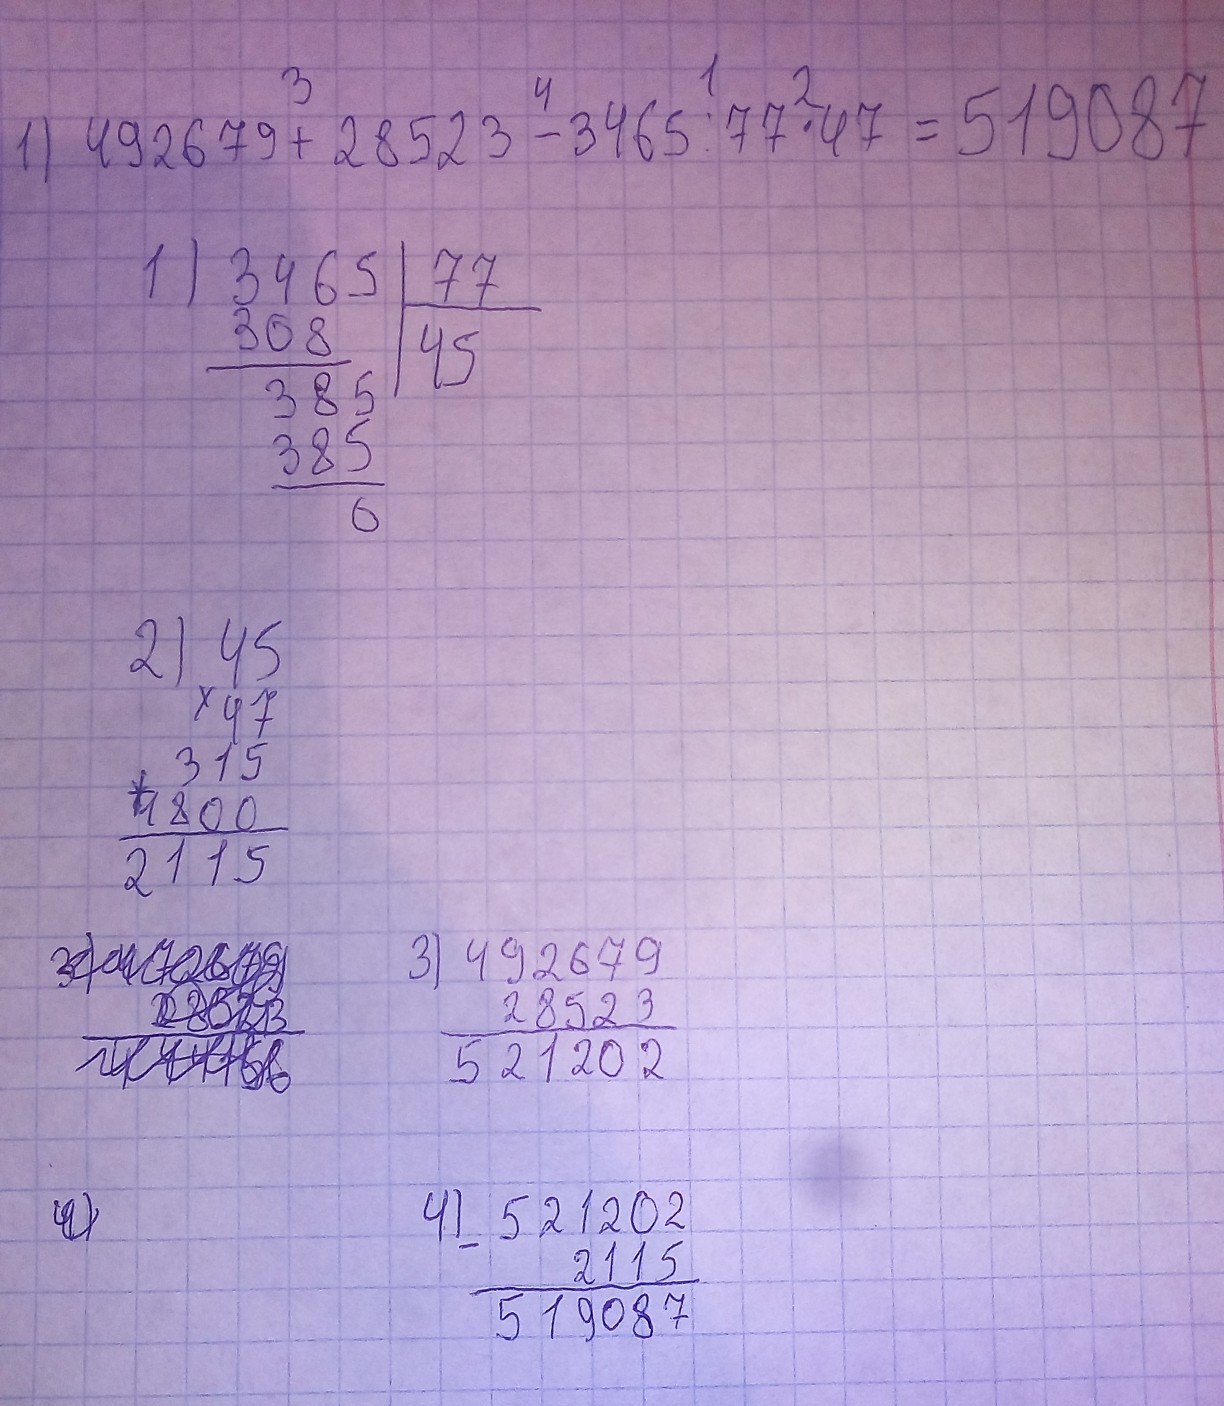 3 4 1 2
1) 492679 + 28523 - 3465 : 77 · 47 = 519087
1) 3465 | 77
308 | 45
385
385
0
2) 45
× 47
315
+ 1800
2115
3) 492679
28523
521202
4) - 521202
2115
519087